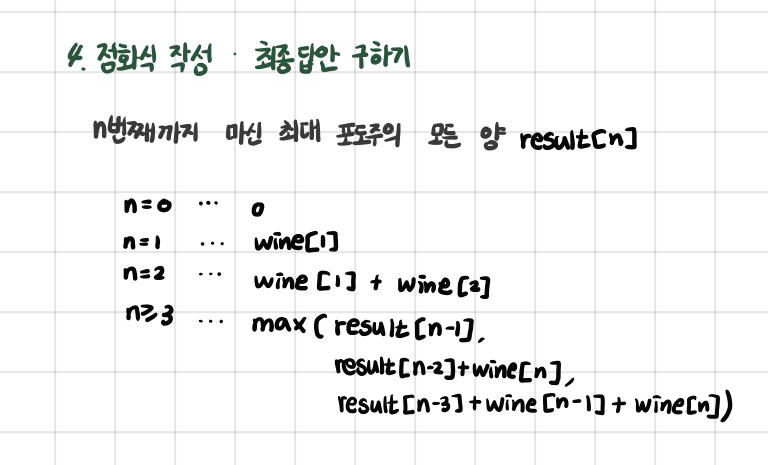 4. 점화식 작성 · 최종답안 구하기
n번째까지 마신 최대 포도주의 모든 양 result[n]
n=0 ... 0
n=1 ... wine[1]
n=2 ... wine[1] + wine[2]
n≥3 ... max( result[n-1],
result[n-2]+wine[n],
result[n-3]+wine[n-1]+ wine[n])